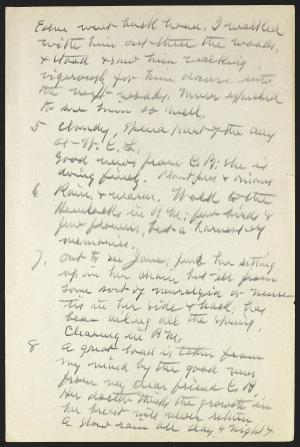 Eden went back home, I walked
with him out thru the woods,
& stood & saw him walking
vigorously far him down into
the next woods, never expected
to see him so well.
5 Cloudy, Spend part of the day
at W. C. L.
Good news from C. B; she is
doing finely.
6 Rain, & warm. Walk to the
Hemlocks in P.M; few birds &
few flowers, but a harvest of
memories.
7. Out to see Jane, find her sitting
up in her chair but ill from
some sort of neuralgia or neuri-
tis in her side & back; has
been ailing all the spring.
Clearing in P.M.
8 A great load is taken from
my mind by the good news
from my dear friend C. B,
Her doctor thinks the growth in
her breast will never return
A slow rain all day, & night &